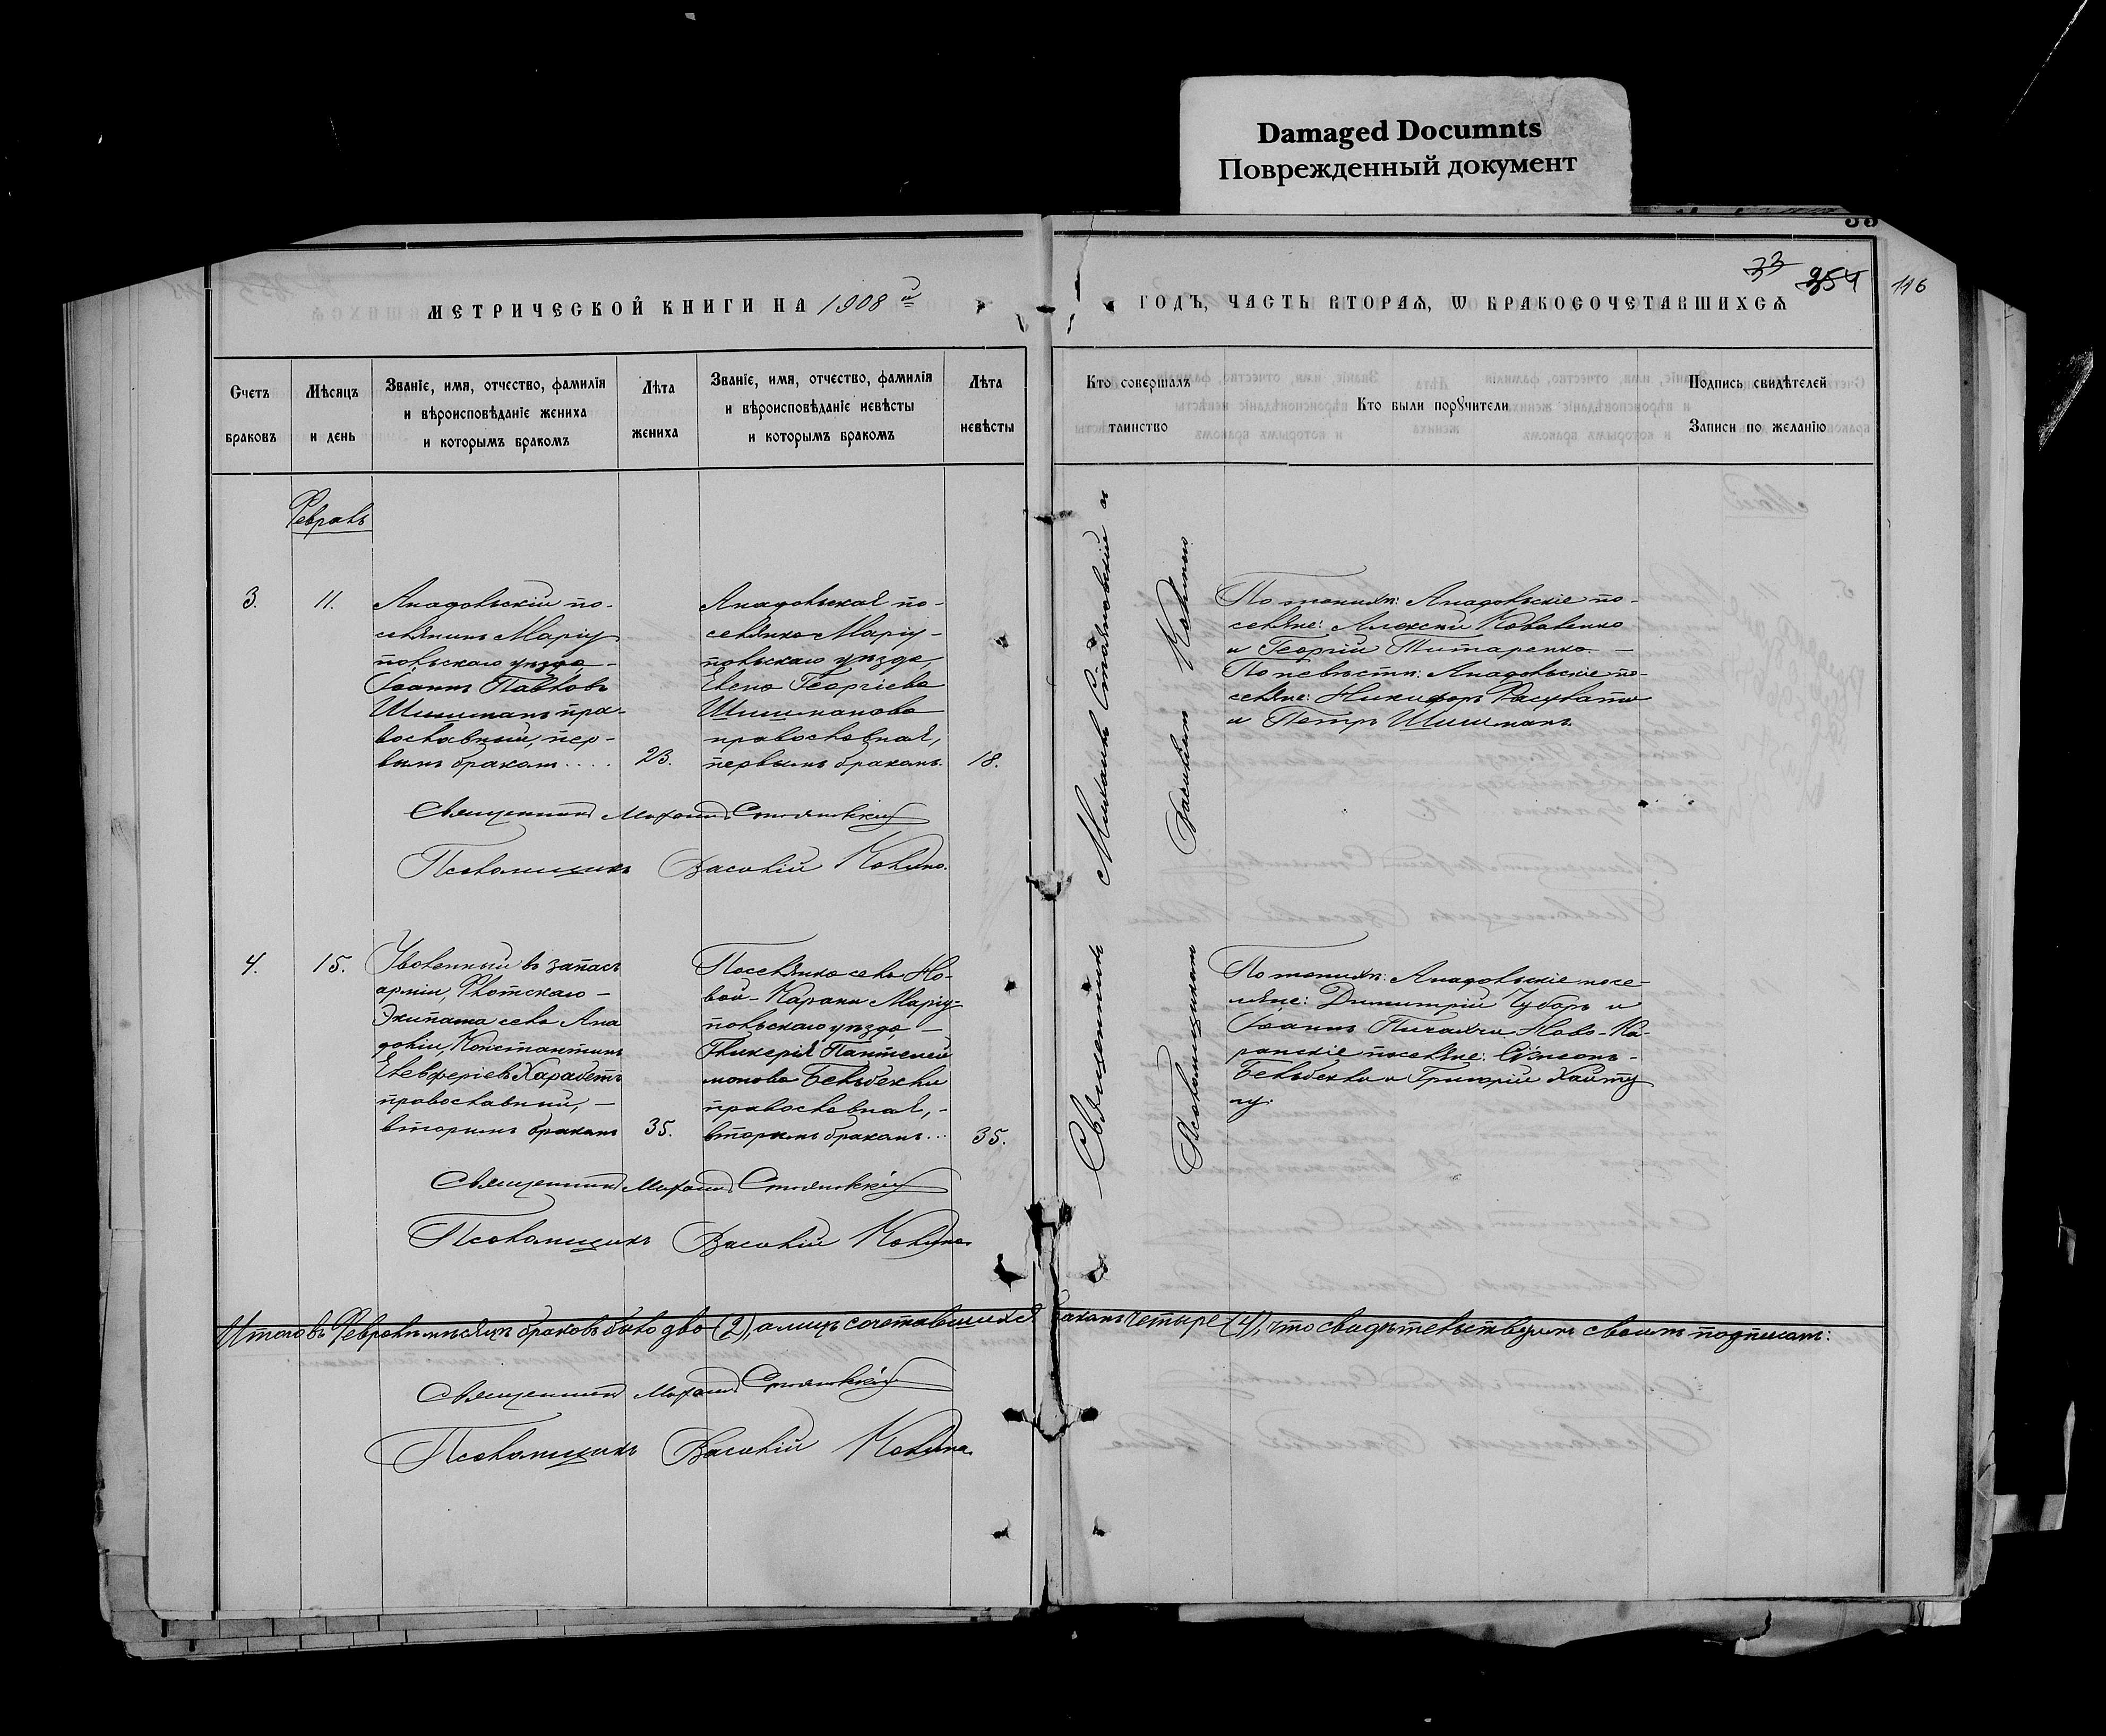 Damaged Documnts
Поврежденный документ
33 254 116
МЕТРИЧЕСКОЙ КНИГИ НА 1908 й
ГОДЪ, ЧАСТЬ ВТОРАЯ, Ѡ БРАКОСОЧЕТАВШИХСЯ
Счетъ
браковъ
Мѣсяцъ
и день
Званіе, имя, отчество, фамилія
и вѣроисповѣданіе жениха
и которымъ бракомъ
Лѣта
жениха
Званіе, имя, отчество, фамилія
и вѣроисповѣданіе невѣсты
и которымъ бракомъ
Лѣта
невѣсты
Кто совершалъ
таинство
Кто были порꙋчители
Подпись свидѣтелей
Записи по желанію
Февраль
3.
11.
Анадольскій по-
селянинъ Маріу
польскаго уѣзда, -
Іоаннъ Павловъ
Шишманъ пра-
вославный, пер-
вымъ бракомъ....
23.
Анадольская по-
селянка Маріу-
польскаго уѣзда,
Елена Георгіева
Шишманова
православная,
первымъ бракомъ.
18.
Священникъ Михаилъ Стояновскій и
Псаломщикомъ Василіемъ Колино
По женихѣ: Анадольскіе по-
селяне: Алексій Коваленко
и Георгій Титаренко. -
По невѣстѣ: Анадольскіе по-
селяне: Никифоръ
и Петръ Шишманъ
Священникъ Михаилъ Стояновскій
Псаломщикъ Василій Колино.
4.
15.
Уволенный въ запасъ
арміи, Флотскаго -
Экипажа села Ана
доліи, Константинъ
Елевферіевъ Харабетъ
православный, -
вторымъ бракомъ
35.
Поселянка села Но-
вой-Карани Маріу-
польскаго уѣзда, -
Гликерія Пантелей
монова Бельбекли
православная, -
вторымъ бракомъ...
35.
По женихѣ: Анадольскіе посе-
ляне: Димитрій Чубарь и
Іоаннъ Пичахчи. Ново-Ка-
ранскіе поселяне: Симеонъ -
Бельбекли и Григорій Хаиту
лу.
Священникъ Михаилъ Стояновскій
Псаломщикъ Василій Колино.
Итого въ Февралѣ мѣсяцѣ браковъ было два (2), а лицъ сочетавшихся бракомъ четыре (4), что свидѣтельствуемъ своимъ подписомъ:
Священникъ Михаилъ Стояновскій
Псаломщикъ Василій Колино.